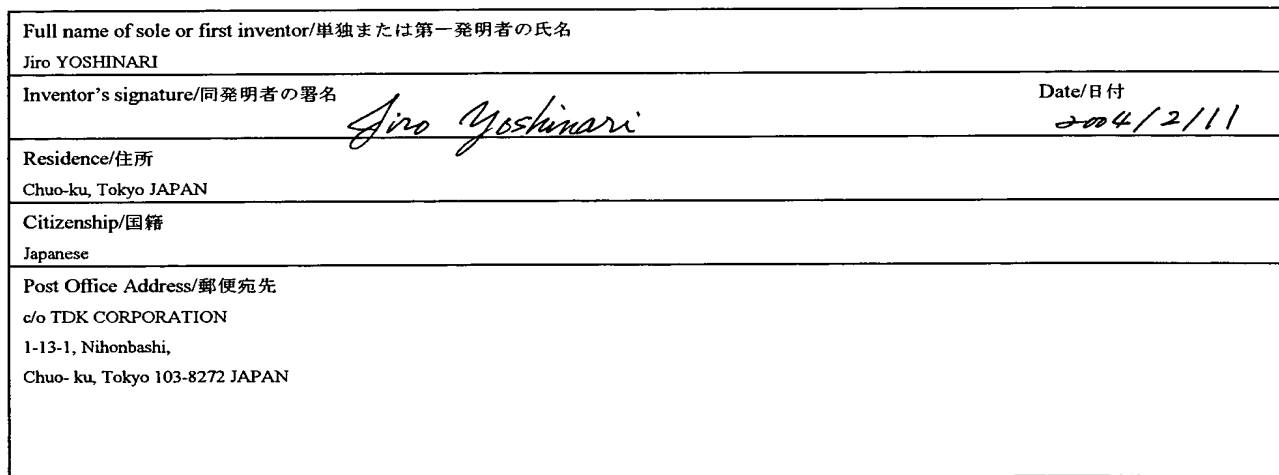 Full name of sole or first inventor/単独または第一発明者の氏名
Jiro YOSHINARI
Inventor's signature/同発明者の署名
Jiro Yoshinari
Date/日付
2004/2/11
Residence/住所
Chuo-ku, Tokyo JAPAN
Citizenship/国籍
Japanese
Post Office Address/郵便宛先
c/o TDK CORPORATION
1-13-1, Nihonbashi,
Chuo- ku, Tokyo 103-8272 JAPAN